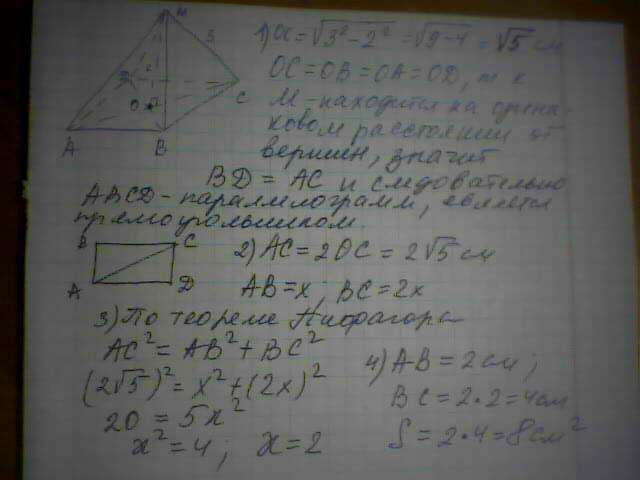 M
3
D
2
C
O
A
B
1) OC = √3² - 2² = √9 - 4 = √5 см
OC = OB = OA = OD, т к
М - находится на одина-
ковом расстоянии от
вершин, значит
BD = AC и следовательно
ABCD - параллилограмм, является
прямоугольником.
B C
A D
2) AC = 2OC = 2√5 см
AB = x; BC = 2x
3) По теореме Пифагора
AC² = AB² + BC²
(2√5)² = x² + (2x)²
20 = 5x²
x² = 4; x = 2
4) AB = 2 см;
BC = 2 · 2 = 4 см
S = 2 · 4 = 8 см²